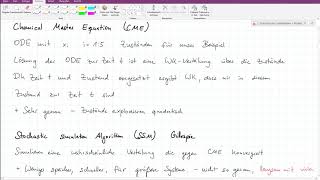 Chemical Master Equation (CME)
ODE mit x_i i=1..5 Zuständen für unser Beispiel
Lösung der ODE zur Zeit t ist eine WK-Verteilung über die Zustände
Dh Zeit t und Zustand eingesetzt ergibt WK, dass wir in diesem
Zustand zur Zeit t sind
+ Sehr genau - Zustände explodieren quadratisch
Stochastic simulation Algorithm (SSM) Gillespie
Simulieren eine wahrscheinliche Verteilung die gegen CME konvergiert
+ Wenig speicher, schneller, für größere Systeme - nicht so genau, langsam mit vielen